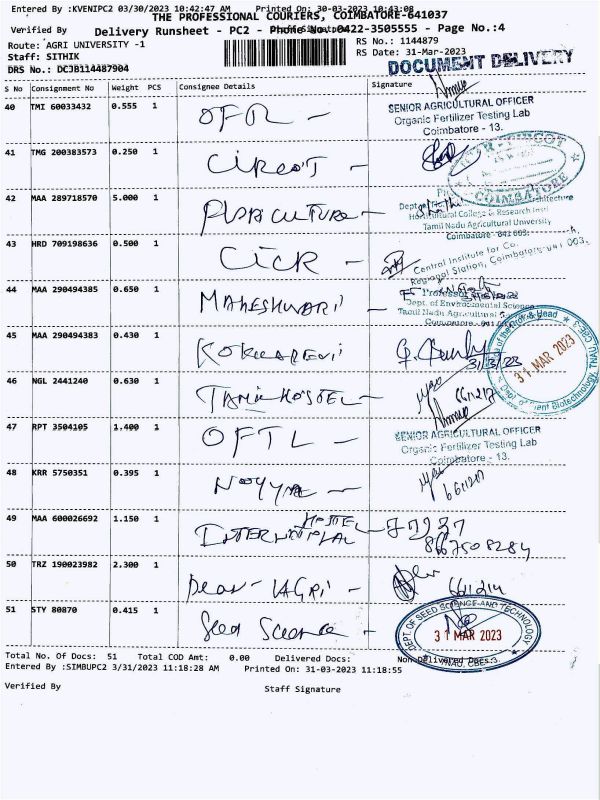 Entered By :KVENIPC2 03/30/2023 10:42:47 AM Printed On: 30-03-2023 10:43:08
THE PROFESSIONAL COURIERS, COIMBATORE-641037
Verified By
Delivery Runsheet - PC2 - Phone No. 0422-3505555 - Page No.:4
Route: AGRI UNIVERSITY -1
RS No.: 1144879
Staff: SITHIK
RS Date: 31-Mar-2023
DRS No.: DCJB114487904
DOCUMENT DELIVERY
S No Consignment No Weight PCS Consignee Details Signature
40 TMI 60033432 0.555 1 OFR -
SENIOR AGRICULTURAL OFFICER
Organic Fertilizer Testing Lab
Coimbatore - 13.
41 TMG 200383573 0.250 1 CIRCOT -
COIMBATORE
42 MAA 289718570 5.000 1 FLORICULTURE -
Horticultural College & Research Insti
Tamil Nadu Agricultural University
Coimbatore - 641 003.
43 HRD 709198636 0.500 1 CICR -
Central Institute for Co.
Regional Station, Coimbatore-641 003.
44 MAA 290494385 0.650 1 MAHESHWARI -
Professor
Dept. of Environmental Science
Tamil Nadu Agricultural
Coimbatore
45 MAA 290494383 0.430 1 KOKILADEVI
31/3/23
31 MAR 2023
46 NGL 2441240 0.630 1 TAMIL HOSTEL -
47 RPT 3504105 1.400 1 OFTL -
SENIOR AGRICULTURAL OFFICER
Organic Fertilizer Testing Lab
Coimbatore - 13.
48 KRR 5750351 0.395 1
49 MAA 600026692 1.150 1 INTERNATIONAL HOSTEL -
8667508284
50 TRZ 190023982 2.300 1 Dean - AGRI -
51 STY 80870 0.415 1 Seed Science -
DEPT. OF SEED SCIENCE AND TECHNOLOGY
31 MAR 2023
TNAU, CBE-3
Total No. Of Docs: 51 Total COD Amt: 0.00 Delivered Docs: Non-Delivered Docs:
Entered By :SIMBUPC2 3/31/2023 11:18:28 AM Printed On: 31-03-2023 11:18:55
Verified By Staff Signature